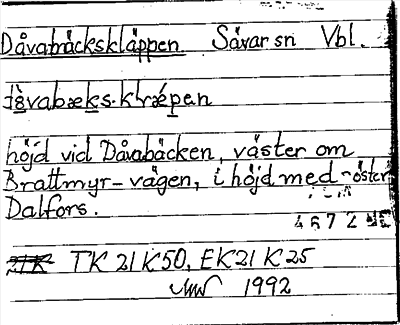 Dåvabäckskläppen Sävar sn Vbl.
höjd vid Dåvabäcken, väster om
Brattmyr-vägen, i höjd med öster
Dalfors.
4672
TK 21K50, EK21K25
1992